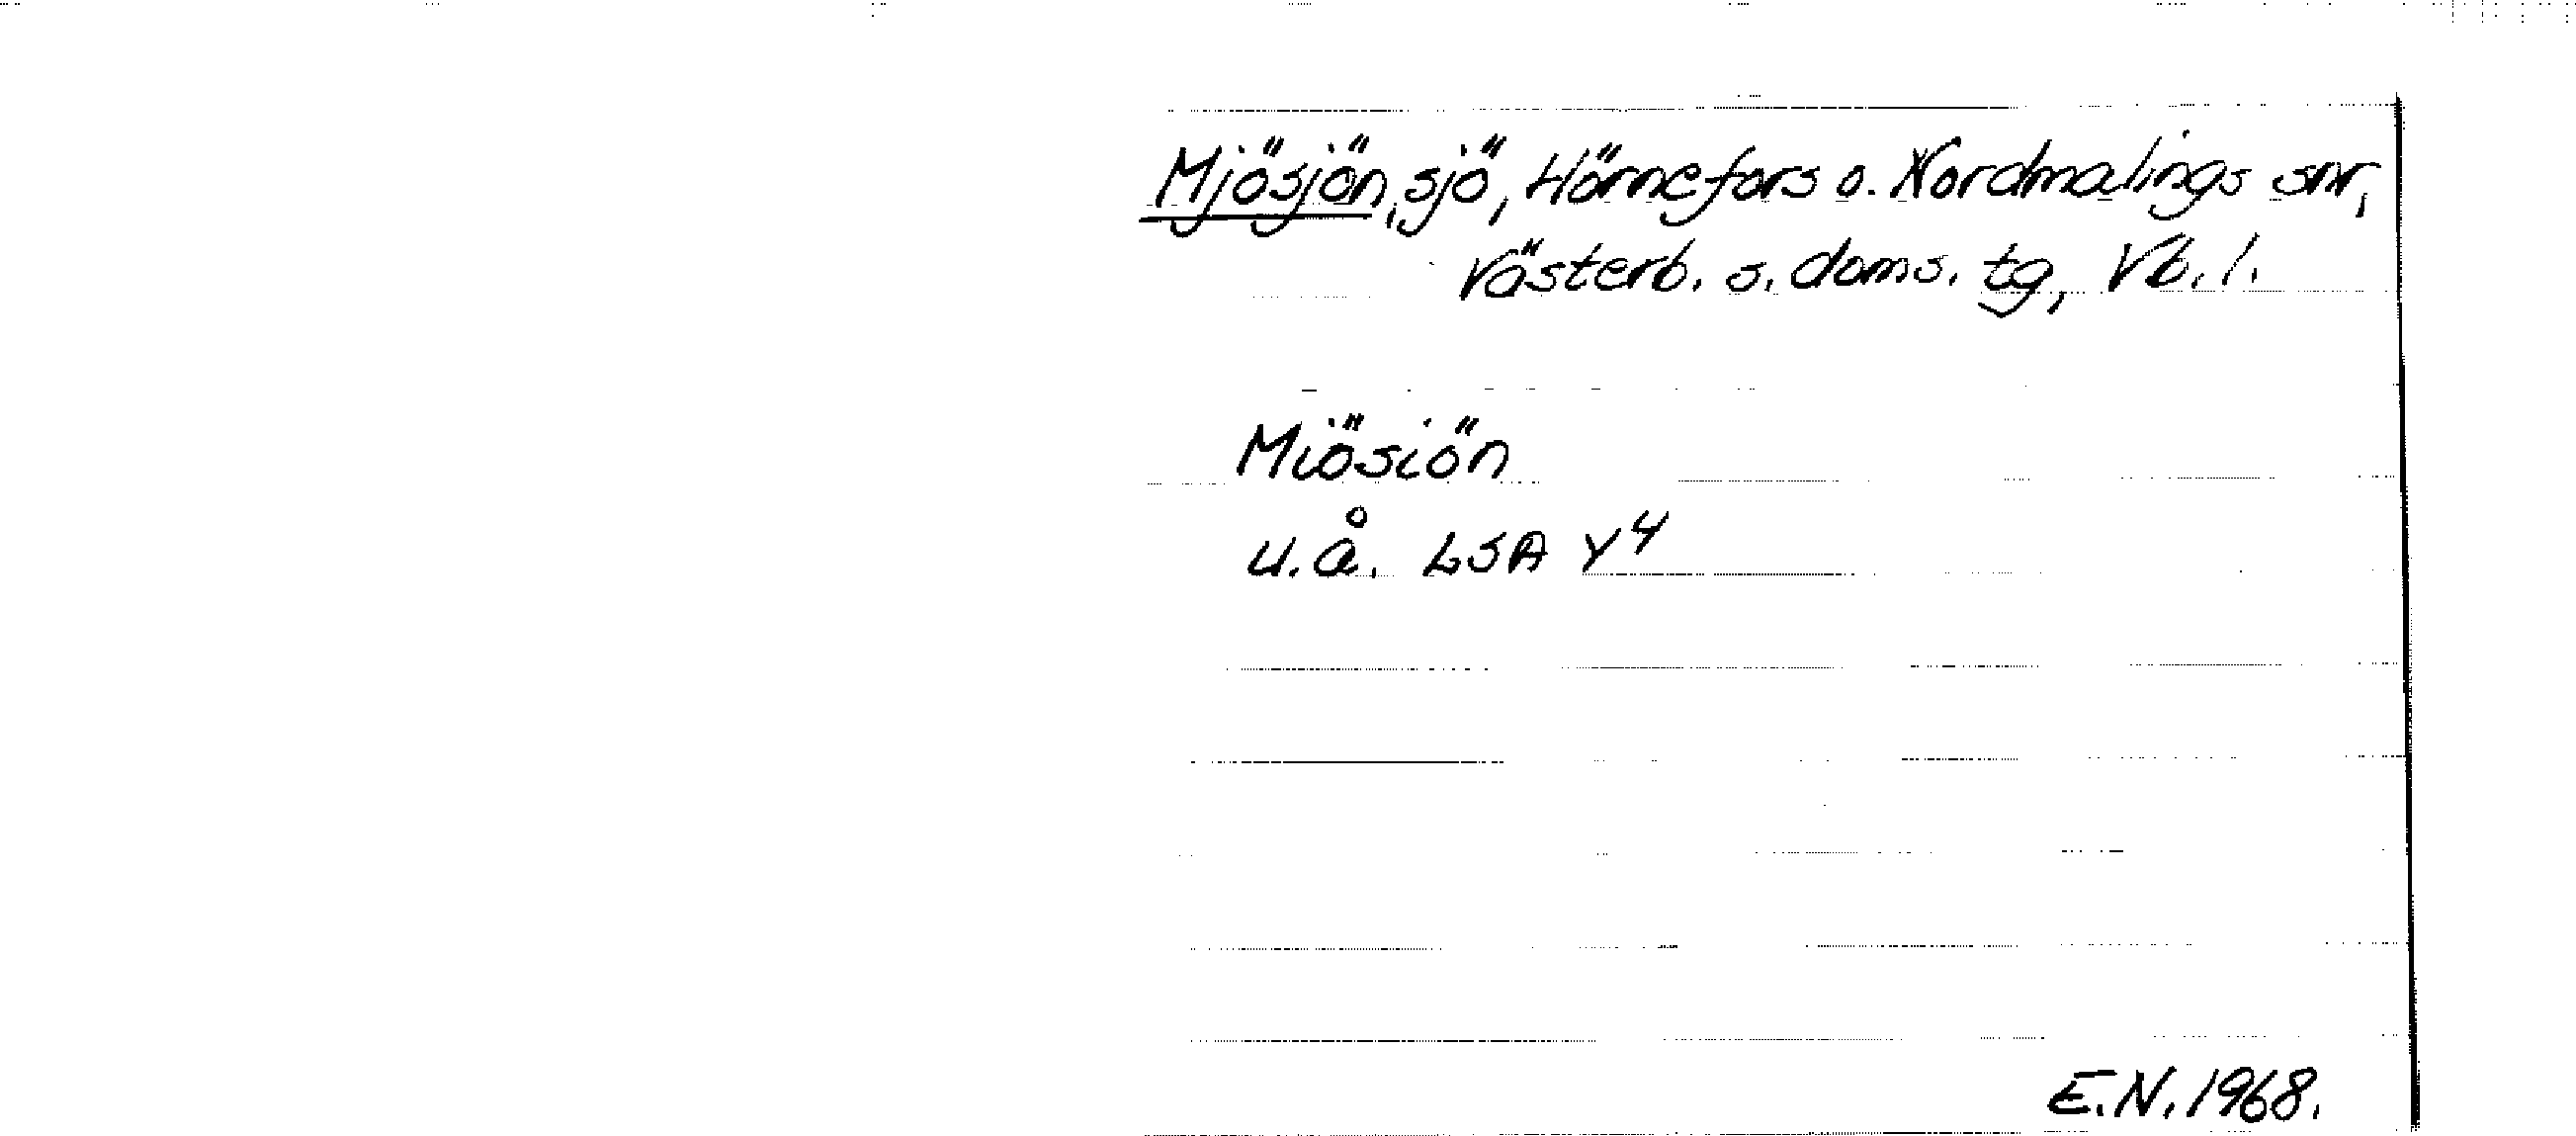 Mjösjön, sjö, Hörnefors o. Nordmalings snr,
Västerb. s. doms. tg, Vb. l.
Miösiön
u.å. LSA Y4
E.N. 1968.